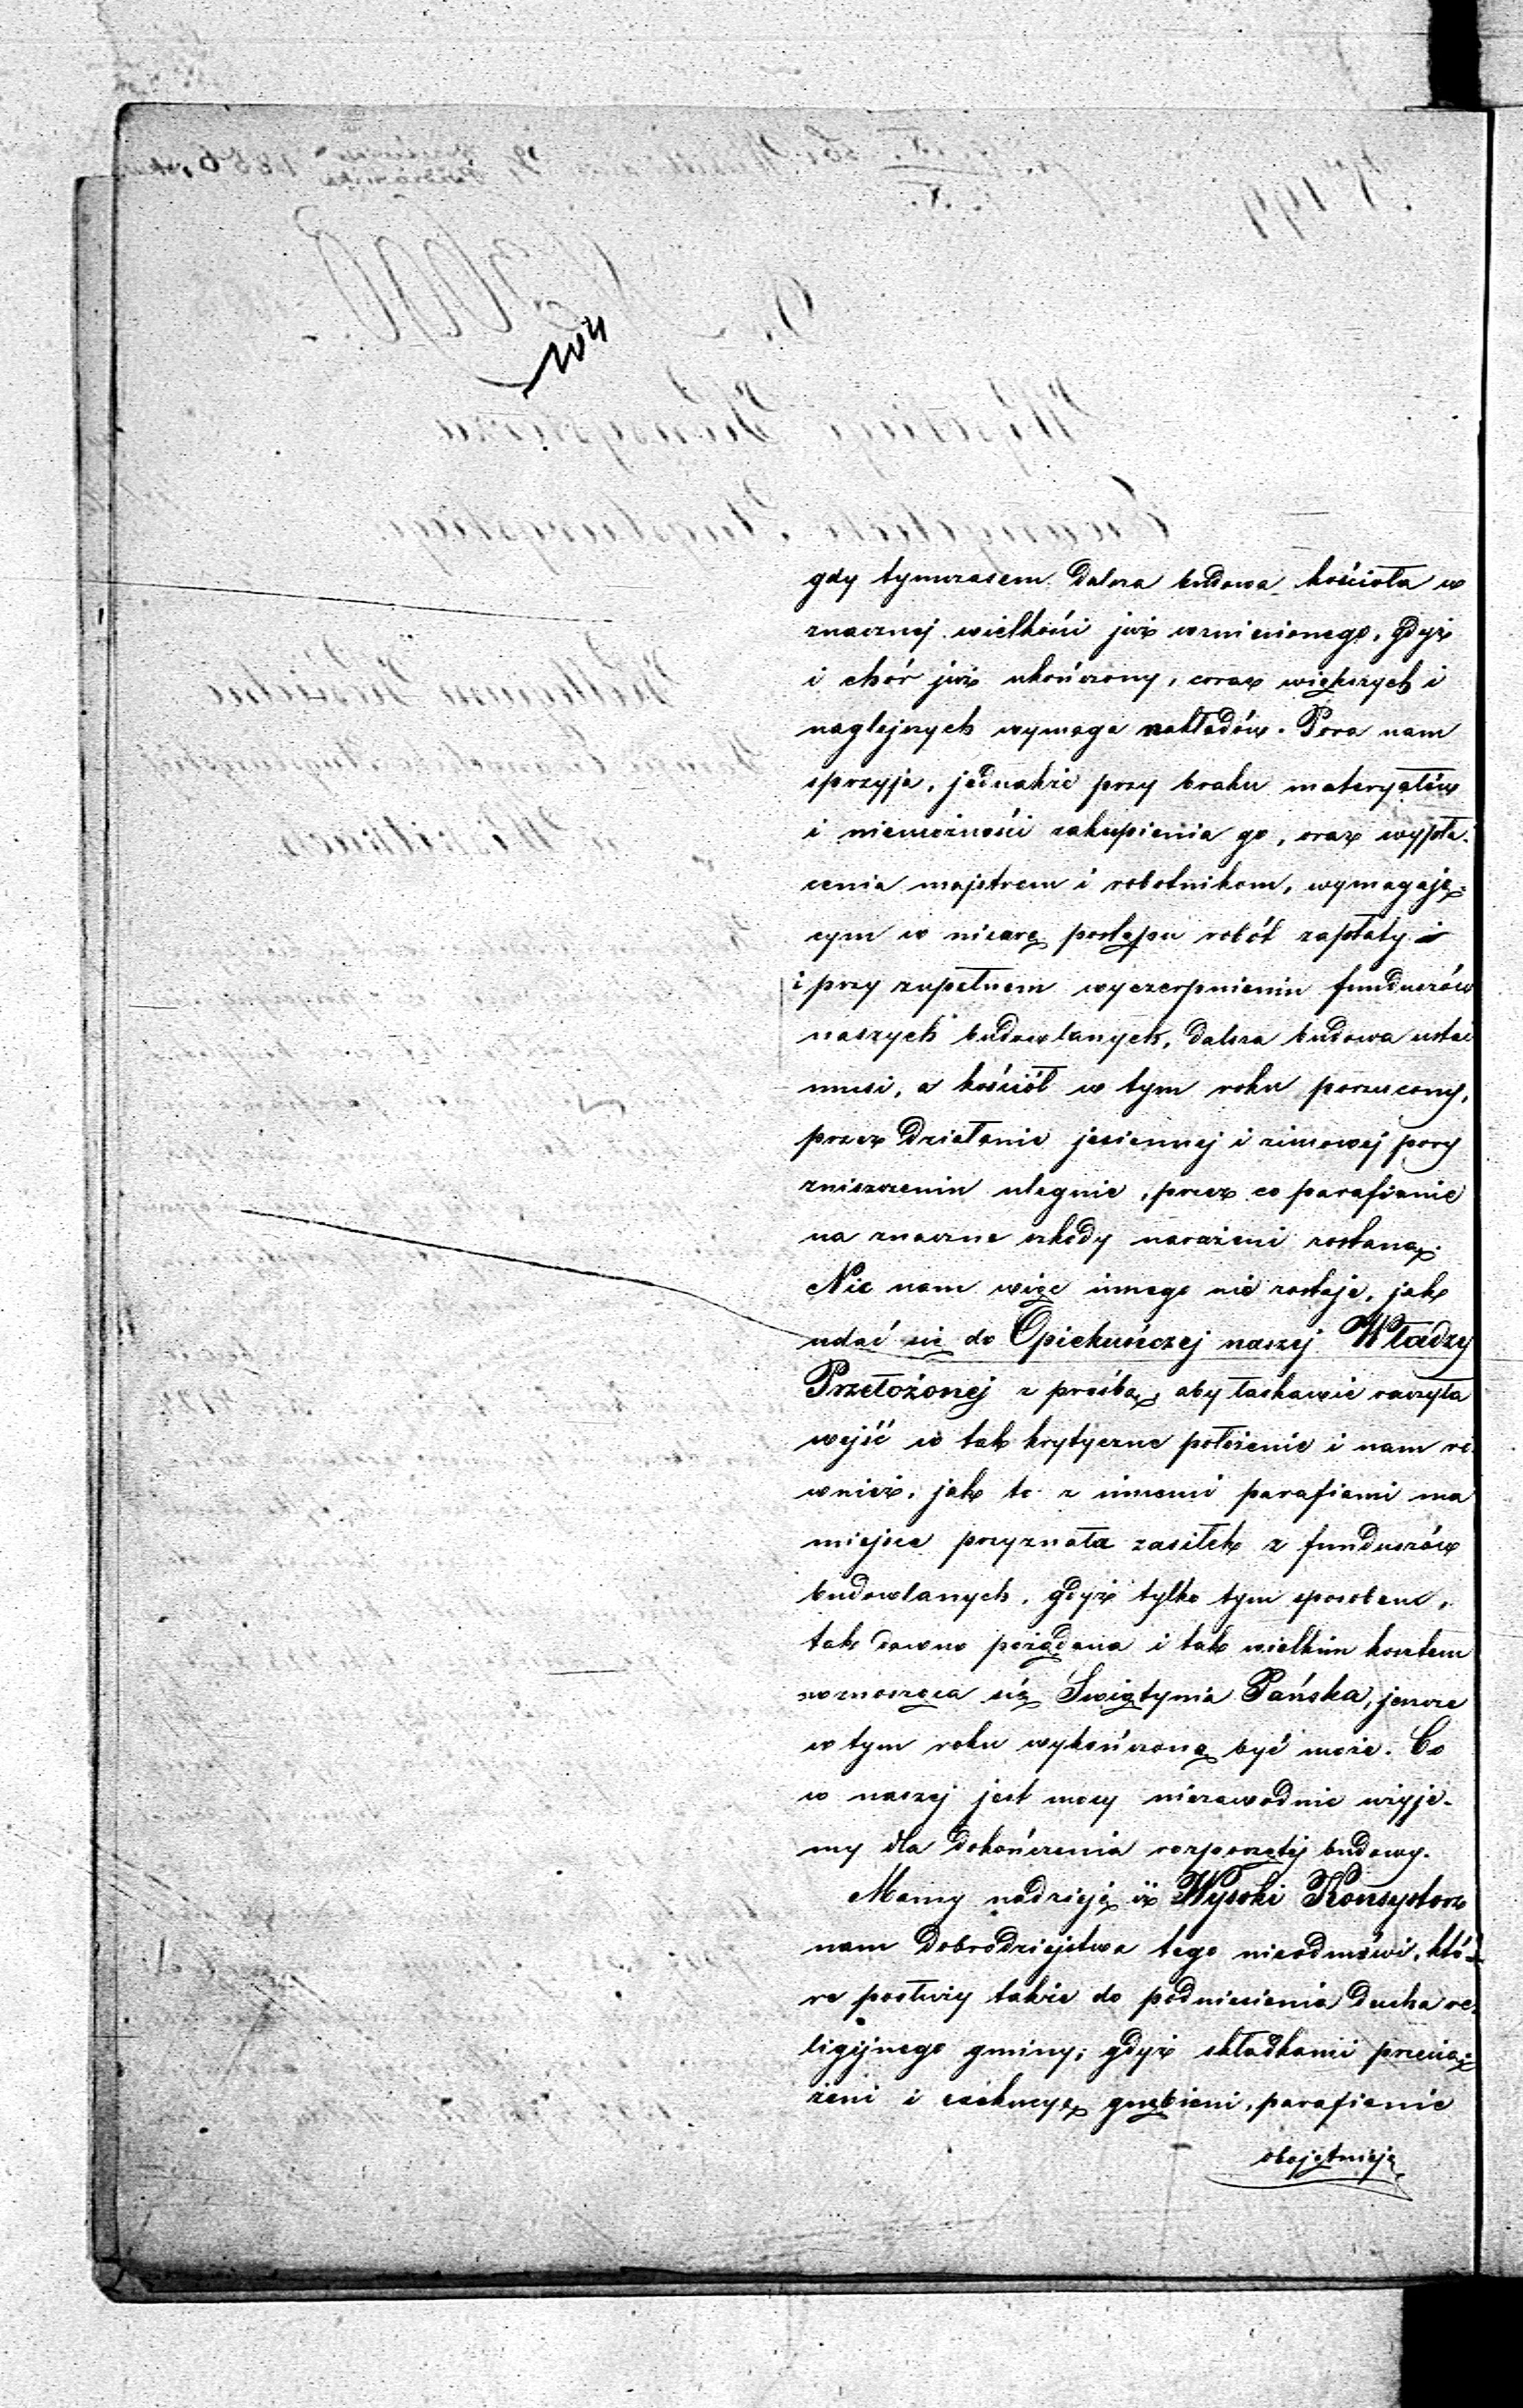 gdy tymczasem dalsza budowa kościoła w
znacznej wielkości już wzniesionego, gdyż
i chór już ukończony, coraz większych i
naglejszych wymaga nakładów. Pora nam
sprzyja, jednakże przy braku materyałów
i niemożności zakupienia go, oraz wypła-
cenia majstrom i robotnikom, wymagają-
cym w miarę postępu robót zapłaty
i przy zupełnem wyczerpnieniu funduszów
naszych budowlanych, dalsza budowa ustać
musi, a kościół w tym roku porzucony,
przez działanie jesiennej i zimowej pory
zniszczeniu ulegnie, przez co parafianie
na znaczne szkody narażeni zostaną.
Nic nam więc innego nie zostaje, jak
udać się do Opiekuńczej naszej Władzy
Przełożonej z prośbą, aby łaskawie raczyła
wejść w tak krytyczne położenie i nam ró-
wnież, jak to z innemi parafiami ma
miejsce przyznała zasiłek z funduszów
budowlanych, gdyż tylko tym sposobem,
tak dawno pożądana i tak wielkim kosztem
wznosząca się Świątynia Pańska, jeszcze
w tym roku wykończoną być może. Co
w naszej jest mocy niezawodnie użyje-
my dla dokończenia rozpoczętej budowy.
Mamy nadzieję iż Wysoki Konsystorz
nam dobrodziejstwa tego nieodmówi, któ-
re posłuży także do podniesienia ducha re-
ligijnego gminy; gdyż składkami przecią-
żeni i gnębieni, parafianie
obojętnieją